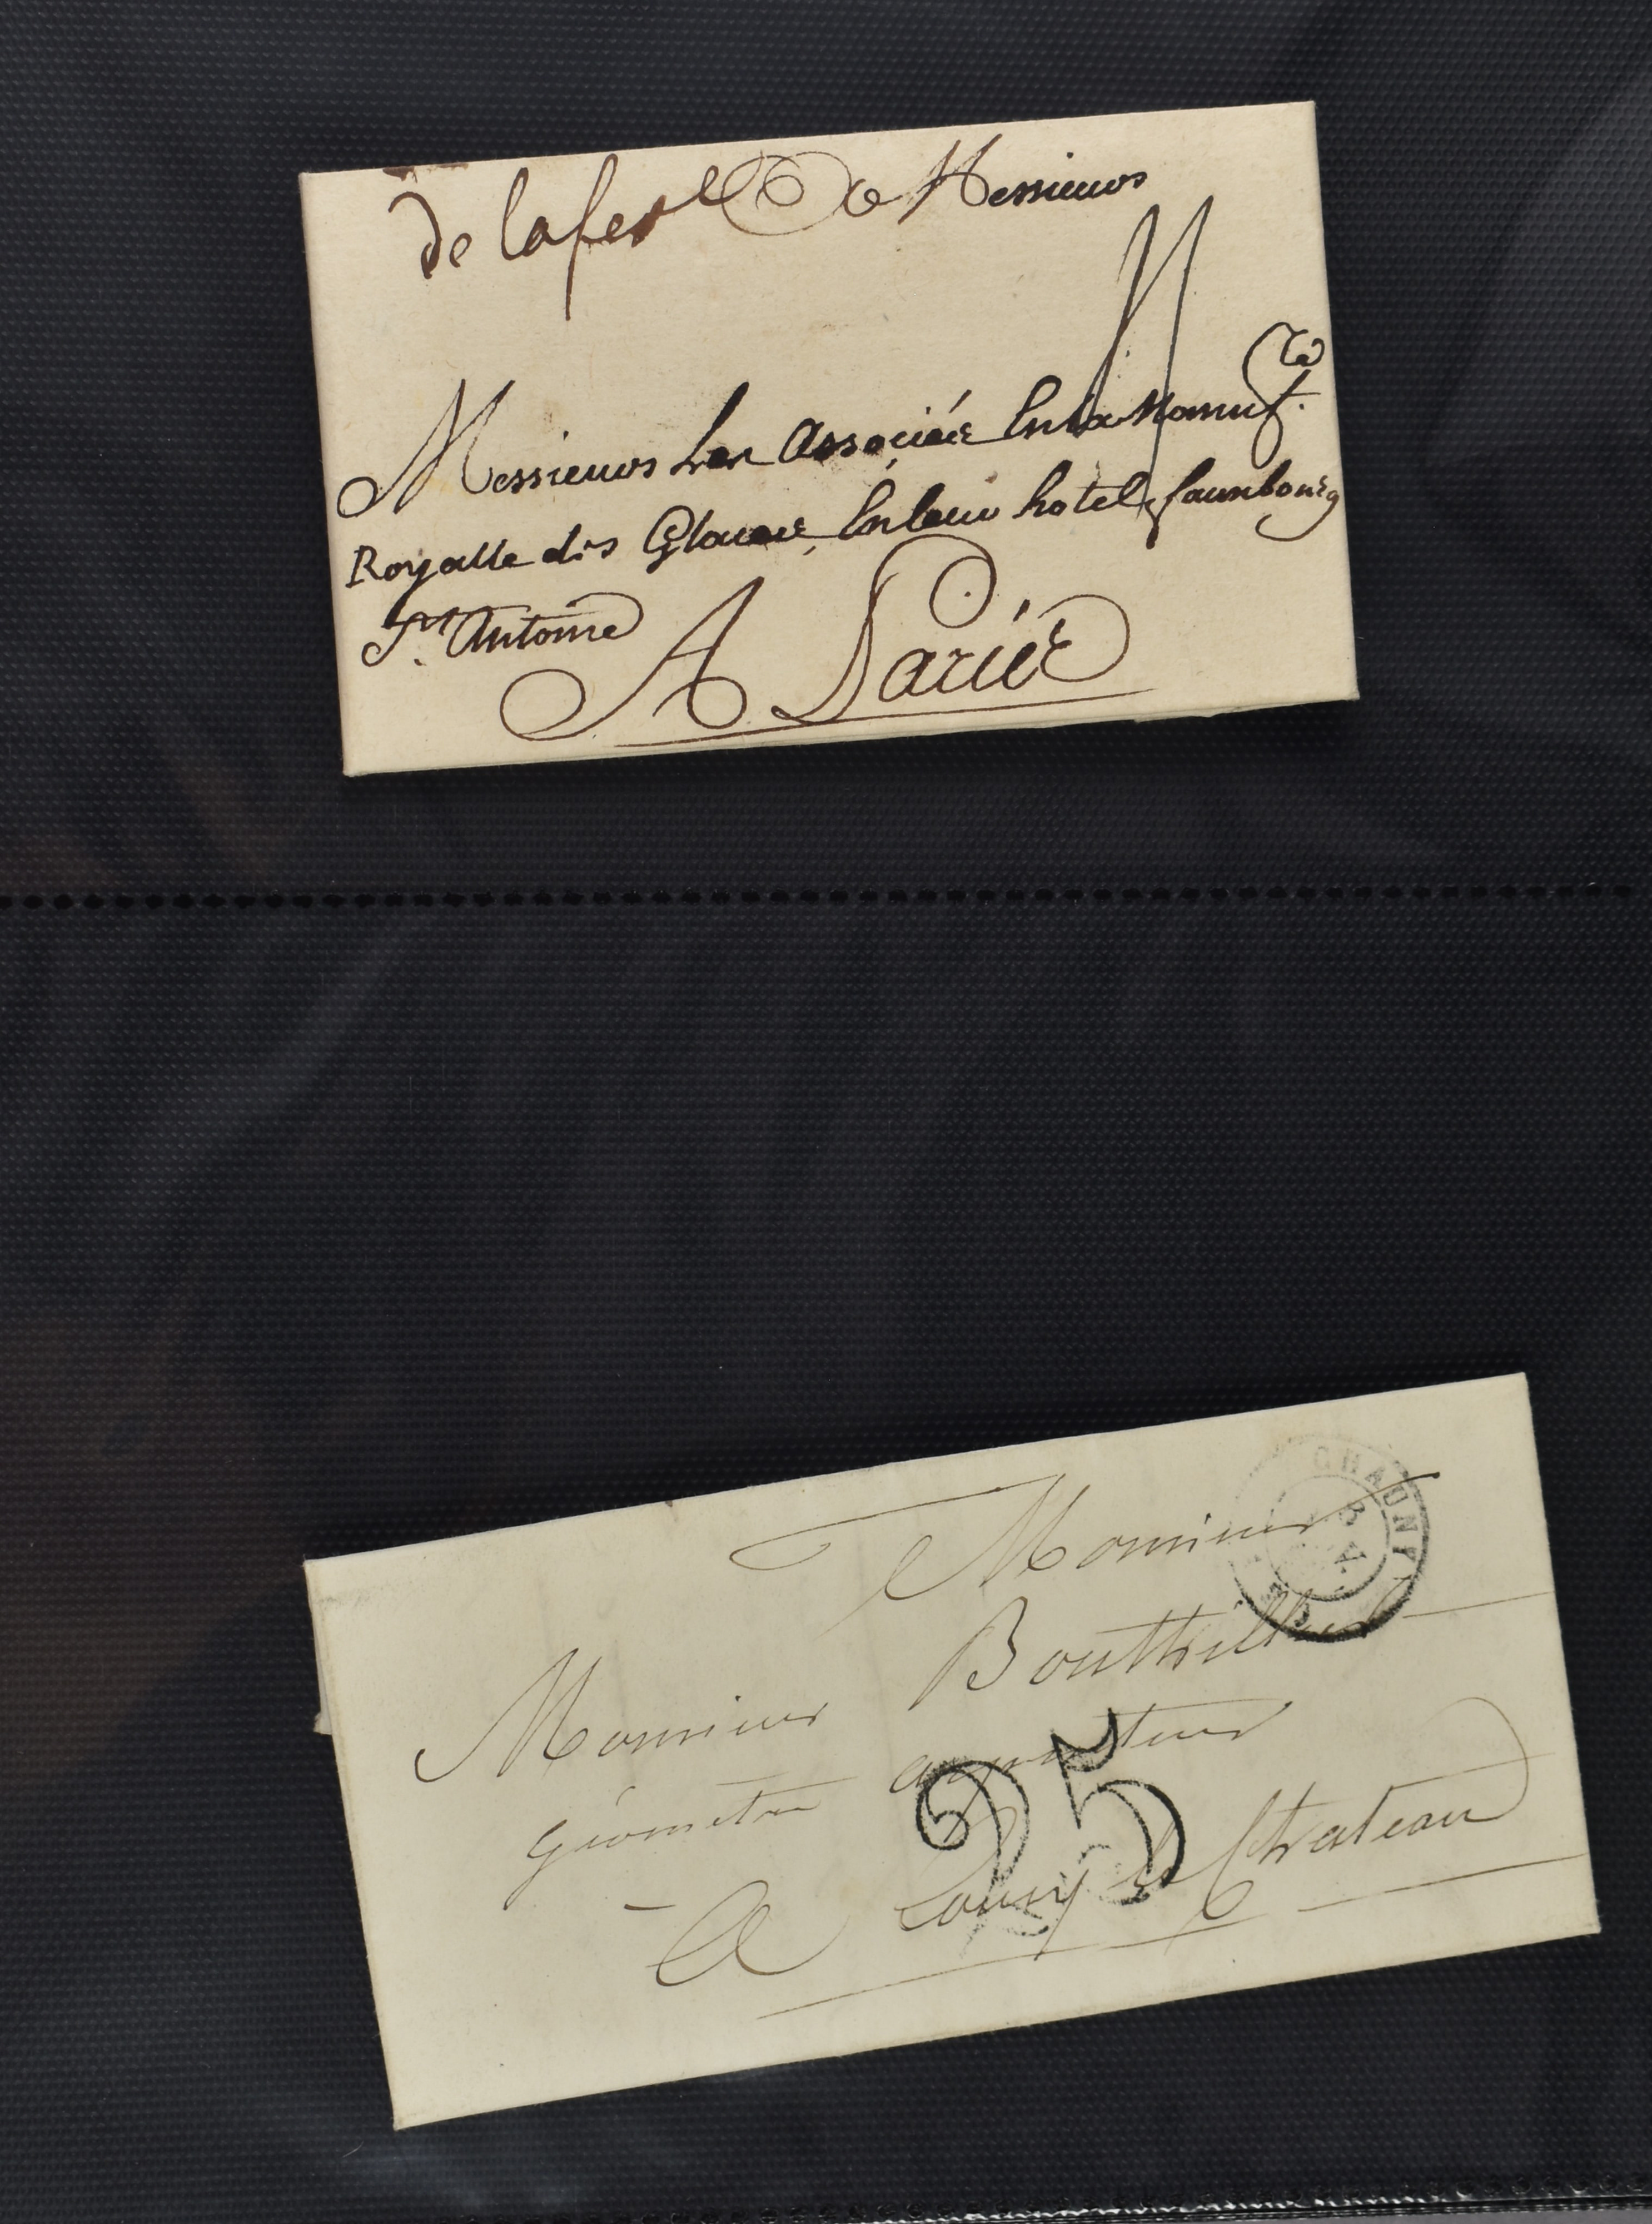 de lafere
Messieurs
Messieurs Les Associés En la Manuf.re
Royalle des Glaces, En leur hotel, fauxbourg
St. Antoine
A Paris
CHAUNY
Monsieur
Bouthillier
Monsieur
géomètre arpenteur
25
A Coucy le Chateau